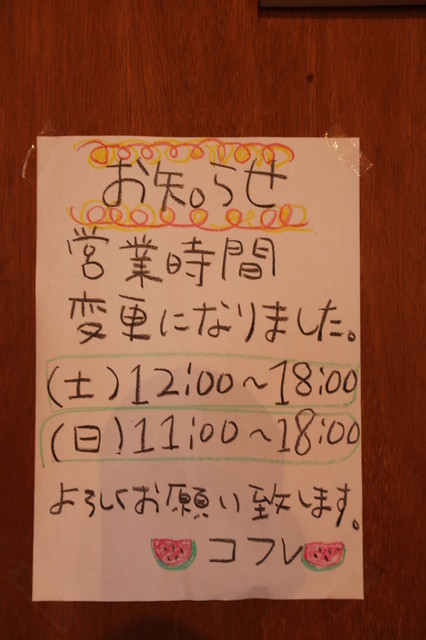 お知らせ
営業時間
変更になりました。
(土)12:00〜18:00
(日)11:00〜18:00
よろしくお願い致します。
コフレ